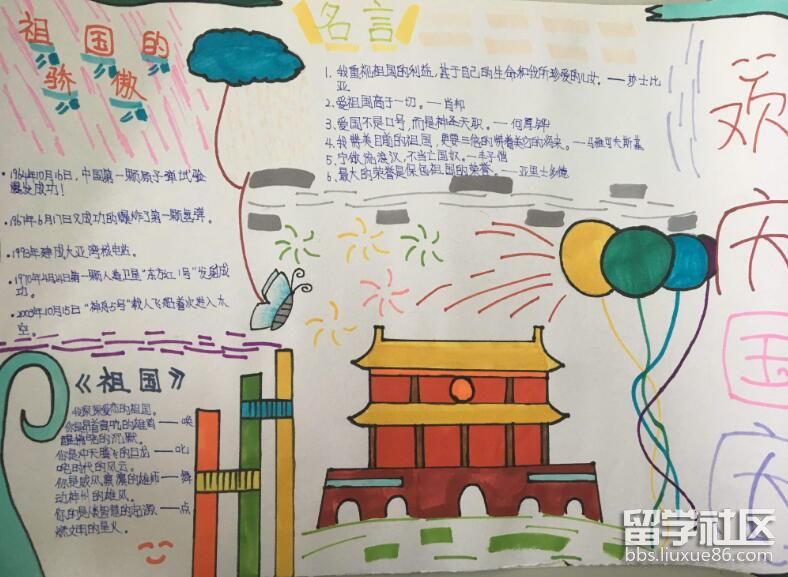 祖国的
骄傲
•1964年10月16日，中国第一颗原子弹试验
爆发成功！
•1967年6月17日又成功的爆炸了第一颗氢弹。
•1993年建成大亚湾核电站。
•1970年4月24日第一颗人造卫星"东方红1号"发射成
功。
•2003年10月15日"神舟5号"载人飞船首次进入太
空。
名言
1. 我重视祖国的利益，甚于自己的生命和我所珍爱的儿女。——莎士比
亚
2.爱祖国高于一切。——肖邦
3.爱国不是口号，而是神圣天职。——何厚铧
4.我赞美目前的祖国，更要三倍的赞美它的将来。——马雅可夫斯基
5.宁做流浪汉，不当亡国奴。
6.最大的荣誉是保卫祖国的荣誉。——亚里士多德
欢
庆
国
庆
《祖国》
我深深爱恋的祖国。
你是昂首高吭的雄鸡——唤
醒拂晓的沉默。
你是冲天腾飞的巨龙——叱
咤时代的风云。
你是威风凛凛的雄狮——舞
动神州的雄风。
你是人类智慧的起源——点
燃文明的星火。
留学社区
bbs.liuxue86.com